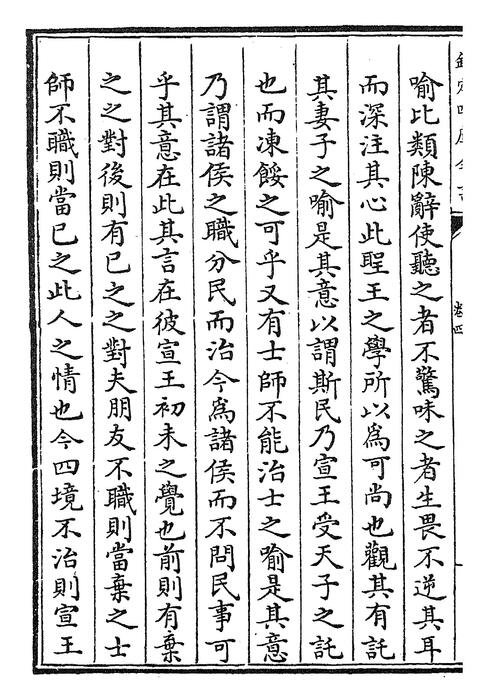 喻比類陳辭使聽之者不驚味之者生畏不逆其耳
而深注其心此聖王之學所以為可尚也觀其有託
其妻子之喻是其意以謂斯民乃宣王受天子之託
也而凍餒之可乎又有士師不能治士之喻是其意
乃謂諸侯之職分民而治今為諸侯而不問民事可
乎其意在此其言在彼宣王初未之覺也前則有棄
之之對後則有已之之對夫朋友不職則當棄之士
師不職則當已之此人之情也今四境不治則宣王
卷四